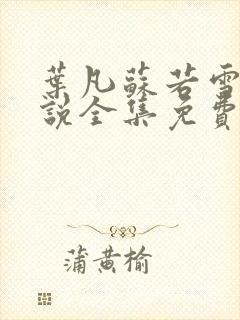 葉凡蘇若雪
說全集免費
蒲黄榆